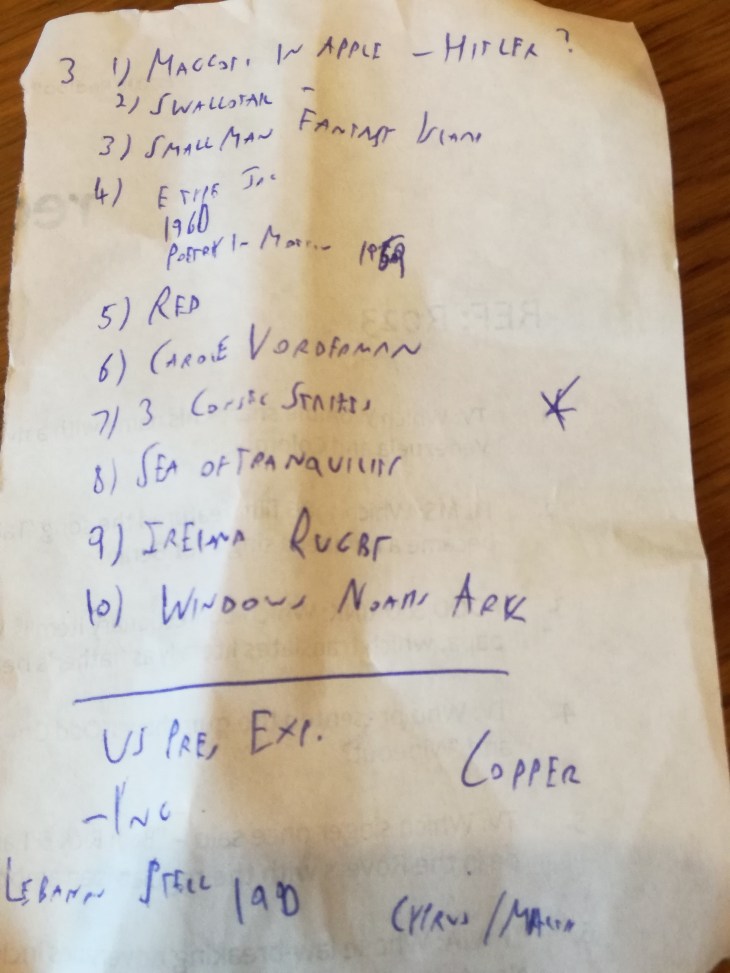 3 1) MAGGOT. IN APPLE - HITLER?
2) SWALLOTAIL -
3) SMALL MAN FANTASY ISLAND
4) E TYPE JAG
1960
POETRY IN MOTION 1959
5) RED
6) CAROLE VORDERMAN
7) 3 COSMIC STRIPES
8) SEA OF TRANQUILITY
9) IRELAND RUGBY
10) WINDOWS NOAHS ARK
US PRE, EXP.
COPPER
- INC
LEBANN STELL 190
CYPRUS / MALTA
REF: R023